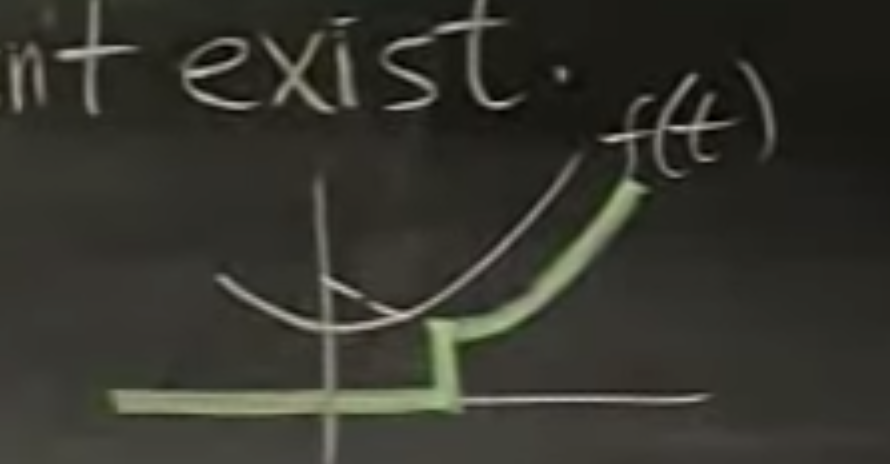 n't exist.
f(t)